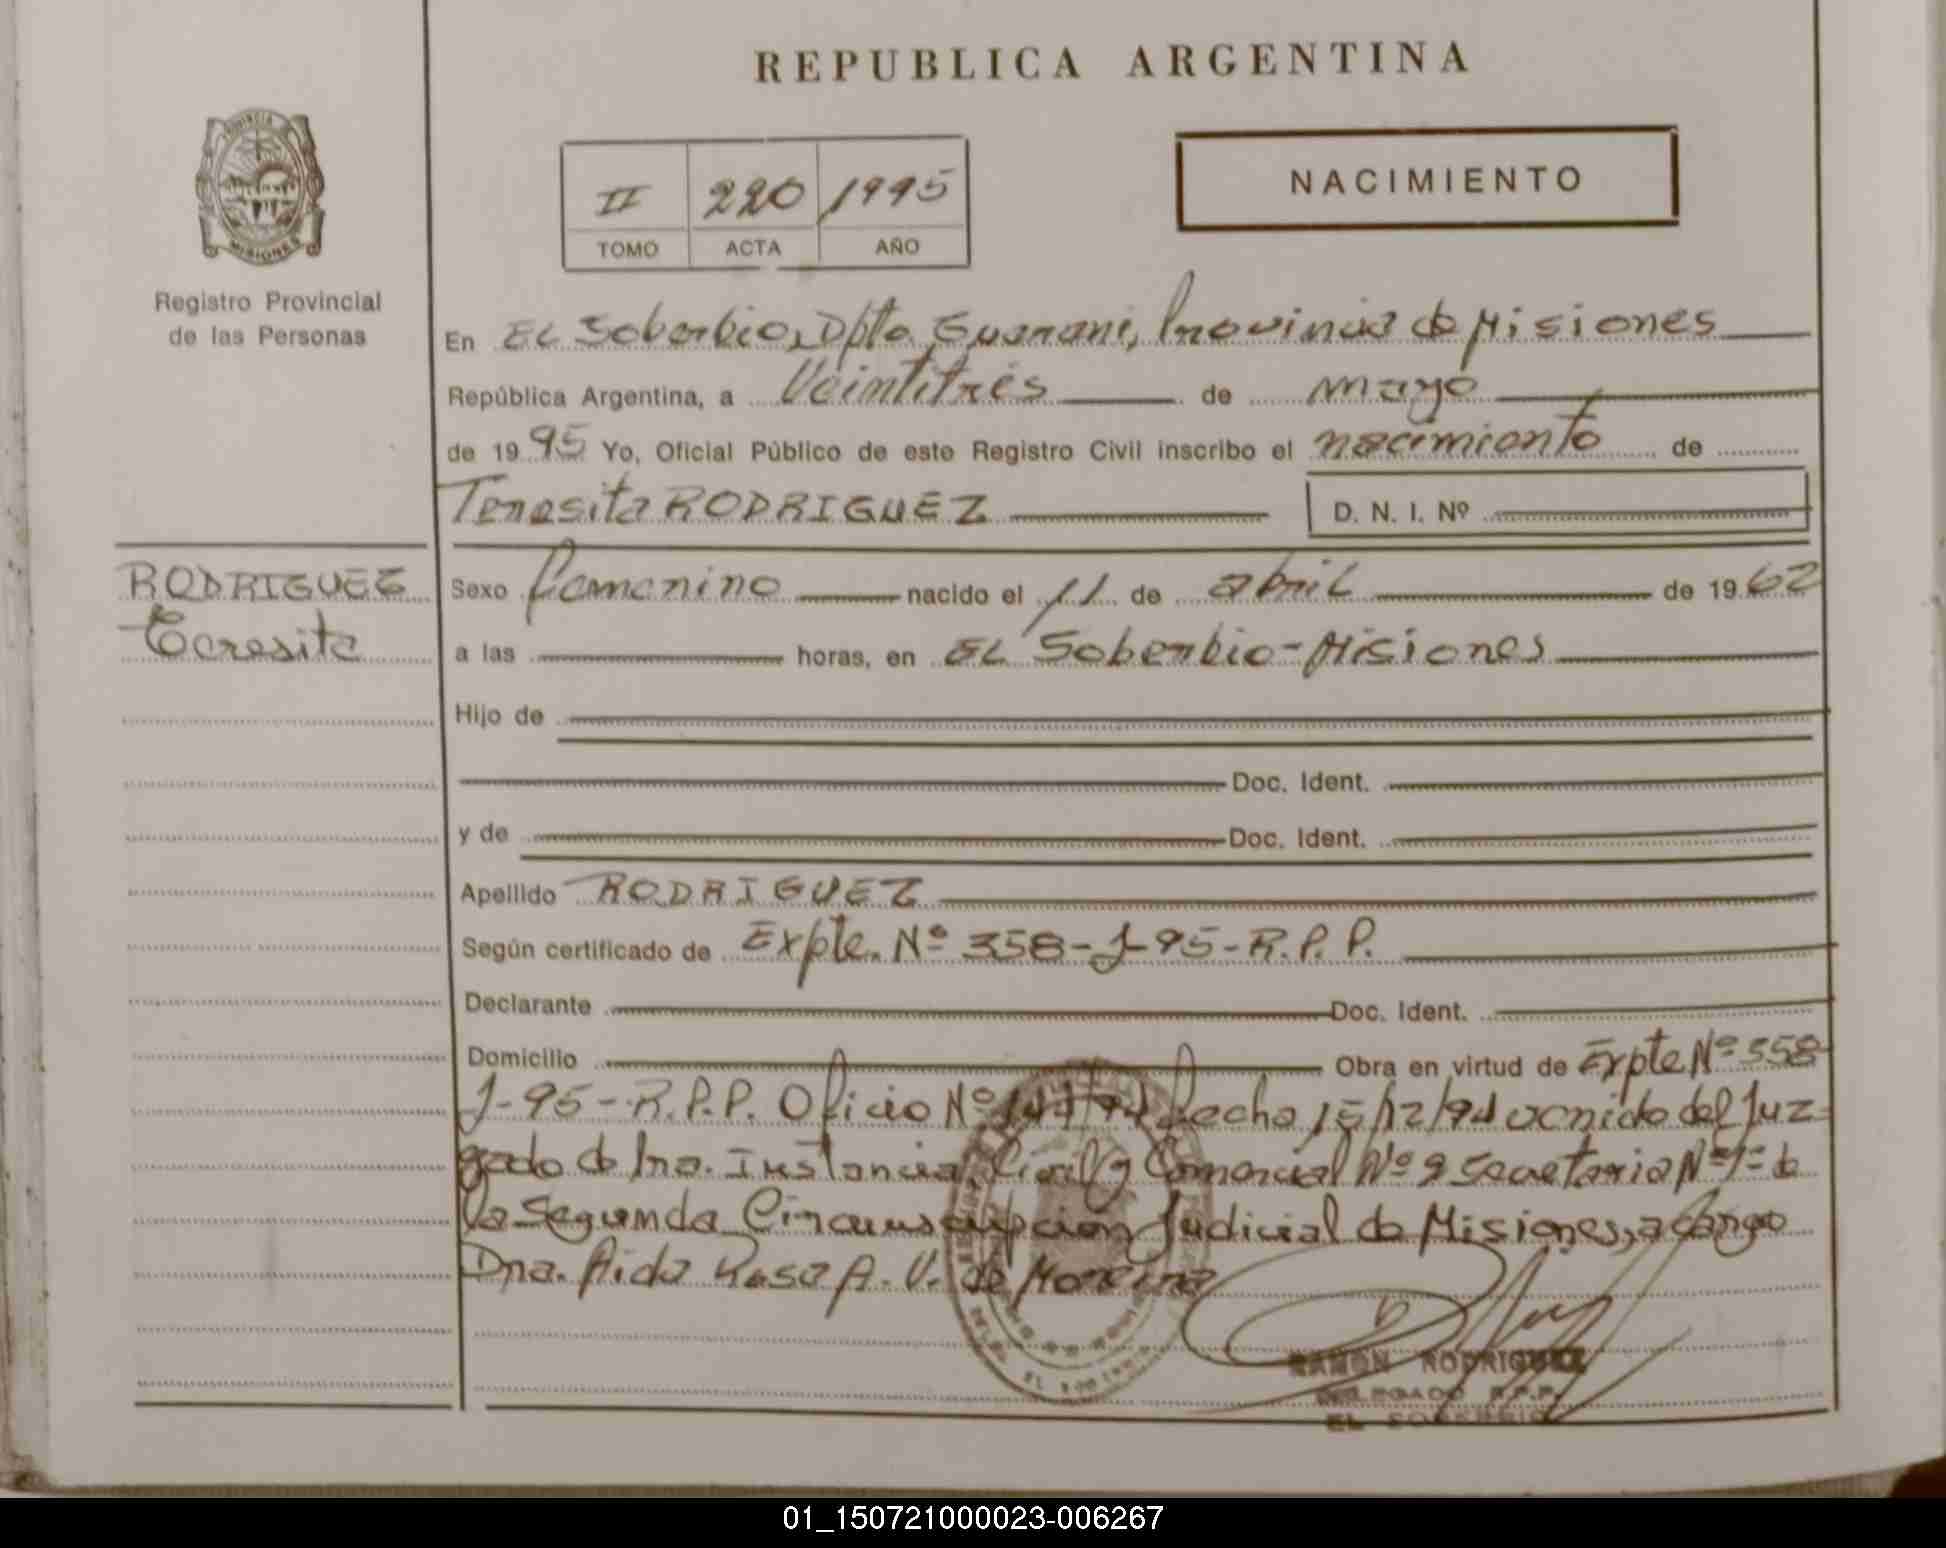 REPUBLICA ARGENTINA
PROVINCIA DE
MISIONES
Registro Provincial
de las Personas
II 220 1995
TOMO ACTA AÑO
NACIMIENTO
En El Soberbio, Dpto Guarani, Provincia de Misiones
República Argentina, a Veintitrés de mayo
de 1995 Yo, Oficial Público de este Registro Civil inscribo el nacimiento de
Teresita RODRIGUEZ D. N. I. Nº
RODRIGUEZ
Teresita
Sexo femenino nacido el 11 de abril de 1962
a las horas, en El Soberbio-Misiones
Hijo de
Doc. Ident.
y de Doc. Ident.
Apellido RODRIGUEZ
Según certificado de Expte. Nº 358-J-95-R.P.P.
Declarante Doc. Ident.
Domicilio Obra en virtud de Expte Nº 358-
J-95-R.P.P. Oficio Nº fecha 15/12/94 venido del Juz-
gado de 1ra. Instancia, Civil y Comercial Nº 2 Secretaria Nº 1 de
la Segunda Circunscripcion Judicial de Misiones, a cargo
Dra. Aida Rosa A. V. de Moreira
RAMON RODRIGUEZ
DELEGADO R.P.P.
EL SOBERBIO
01_150721000023-006267